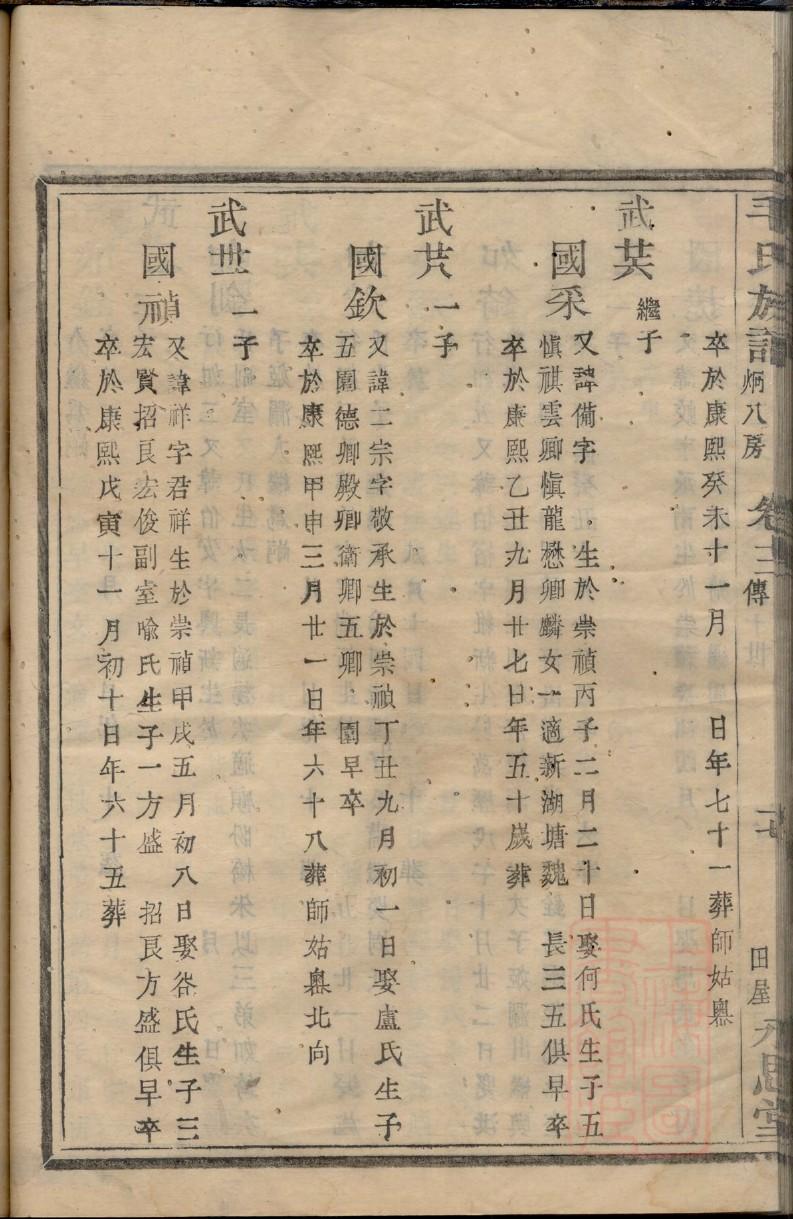 毛氏族譜 炳八房 卷十三 傳 田屋 永思堂
卒於康熙癸未十一月 日年七十一葬師姑墺
武英 繼子
國采 又諱備字 生於崇禎丙子二月二十日娶何氏生子五
愼祺雲卿愼龍懋卿麟女一適新湖塘魏 長三五俱早卒
卒於康熙乙丑九月廿七日年五十歲葬
武芃 一子
國欽 又諱二宗字敬承生於崇禎丁丑九月初一日娶盧氏生子
五園德卿殿卿衛卿五卿 園早卒
卒於康熙甲申三月廿一日年六十八葬師姑墺北向
武世 一子
國禎 又諱祥字君祥生於崇禎甲戌五月初八日娶谷氏生子三
宏賢招良宏俊副室喻氏生子一方盛 招良方盛俱早卒
卒於康熙戊寅十一月初十日年六十五葬